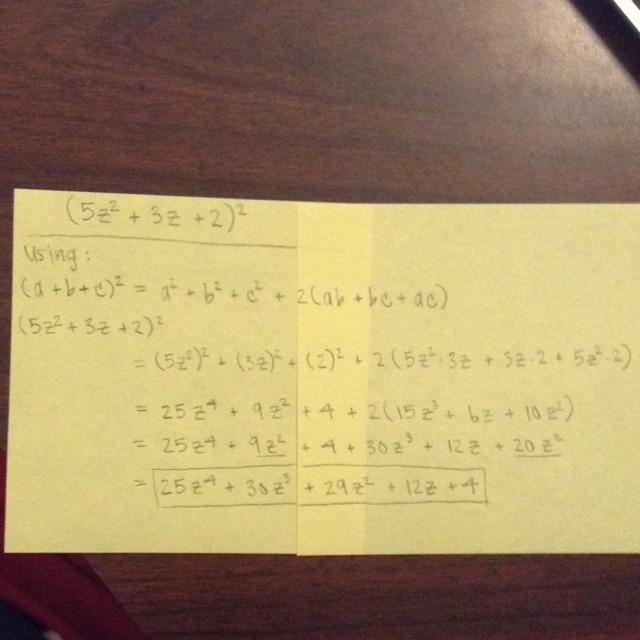 (5z² + 3z + 2)²
Using:
(a + b + c)² = a² + b² + c² + 2(ab + bc + ac)
(5z² + 3z + 2)²
= (5z²)² + (3z)² + (2)² + 2(5z²·3z + 3z·2 + 5z²·2)
= 25z⁴ + 9z² + 4 + 2(15z³ + 6z + 10z²)
= 25z⁴ + 9z² + 4 + 30z³ + 12z + 20z²
= 25z⁴ + 30z³ + 29z² + 12z + 4